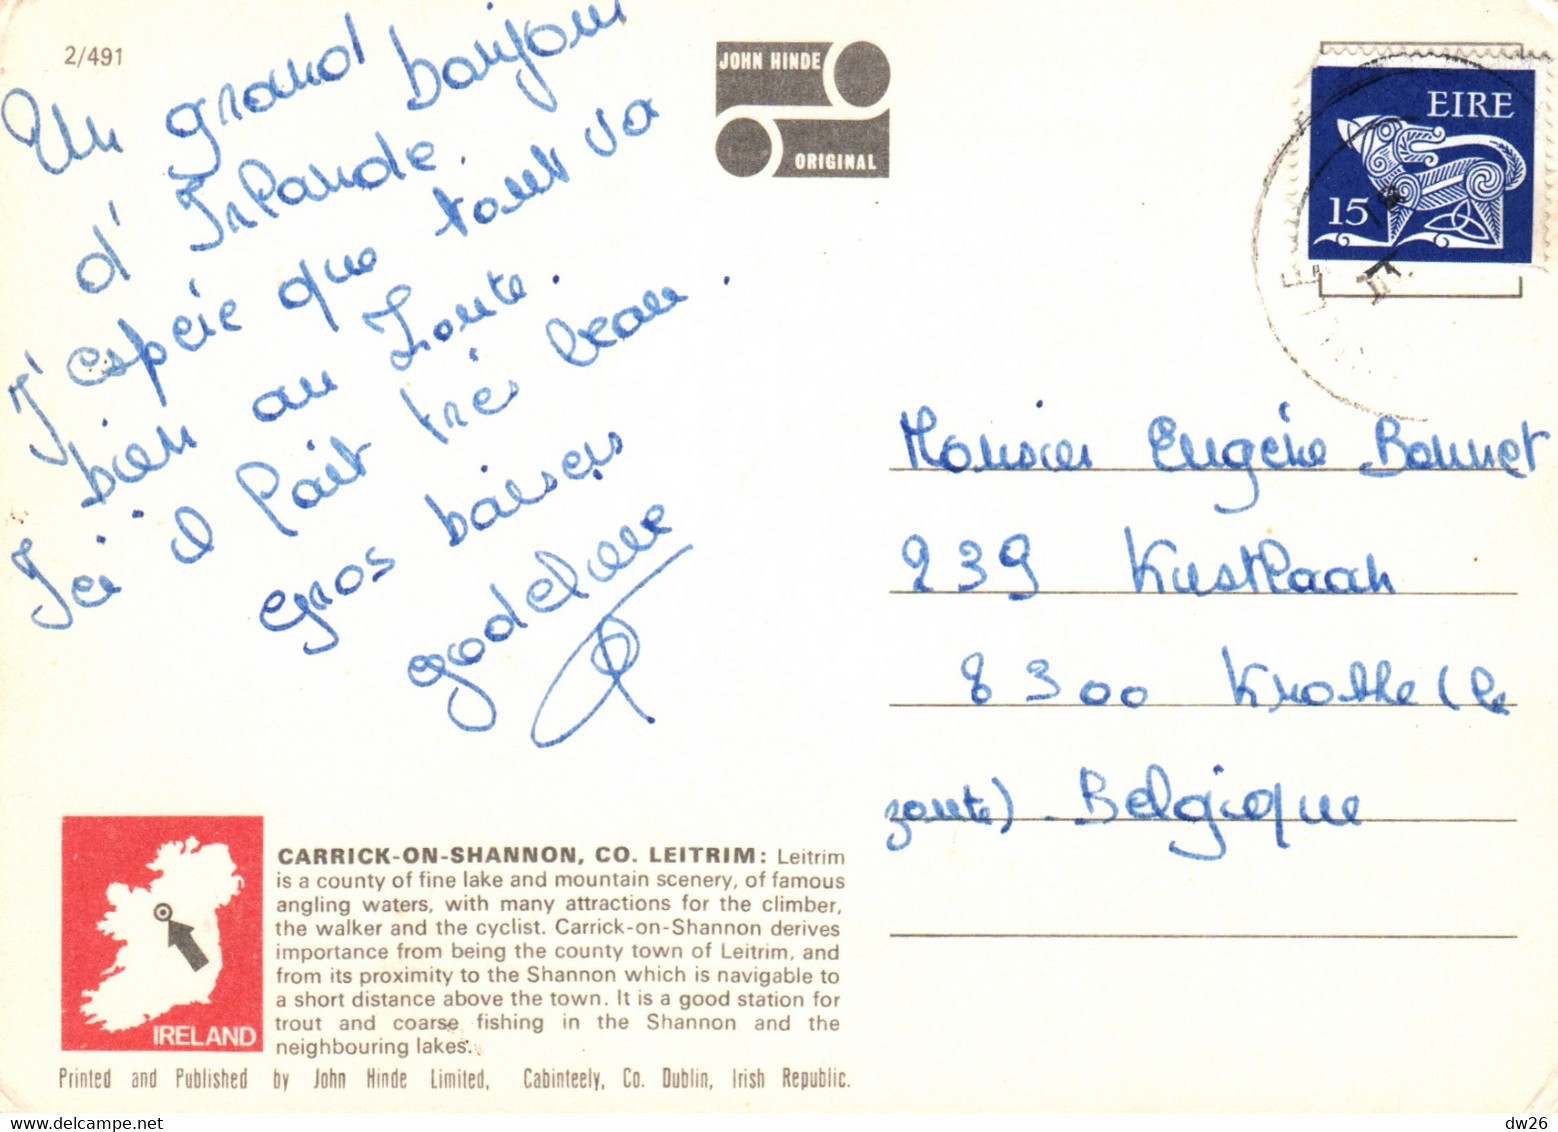 2/491
Un grand bonjour
d'Irlande.
J'espère que tout va
bien au Zoute.
Ici il fait très beau.
Gros baisers
godelieve
JOHN HINDE
ORIGINAL
EIRE
15
Monsieur Eugène Bonnet
239 Kustlaan
8300 Knokke (le
zoute) Belgique
CARRICK-ON-SHANNON, CO. LEITRIM: Leitrim
is a county of fine lake and mountain scenery, of famous
angling waters, with many attractions for the climber,
the walker and the cyclist. Carrick-on-Shannon derives
importance from being the county town of Leitrim, and
from its proximity to the Shannon which is navigable to
a short distance above the town. It is a good station for
trout and coarse fishing in the Shannon and the
neighbouring lakes.
IRELAND
Printed and Published by John Hinde Limited, Cabinteely, Co. Dublin, Irish Republic.
dw26